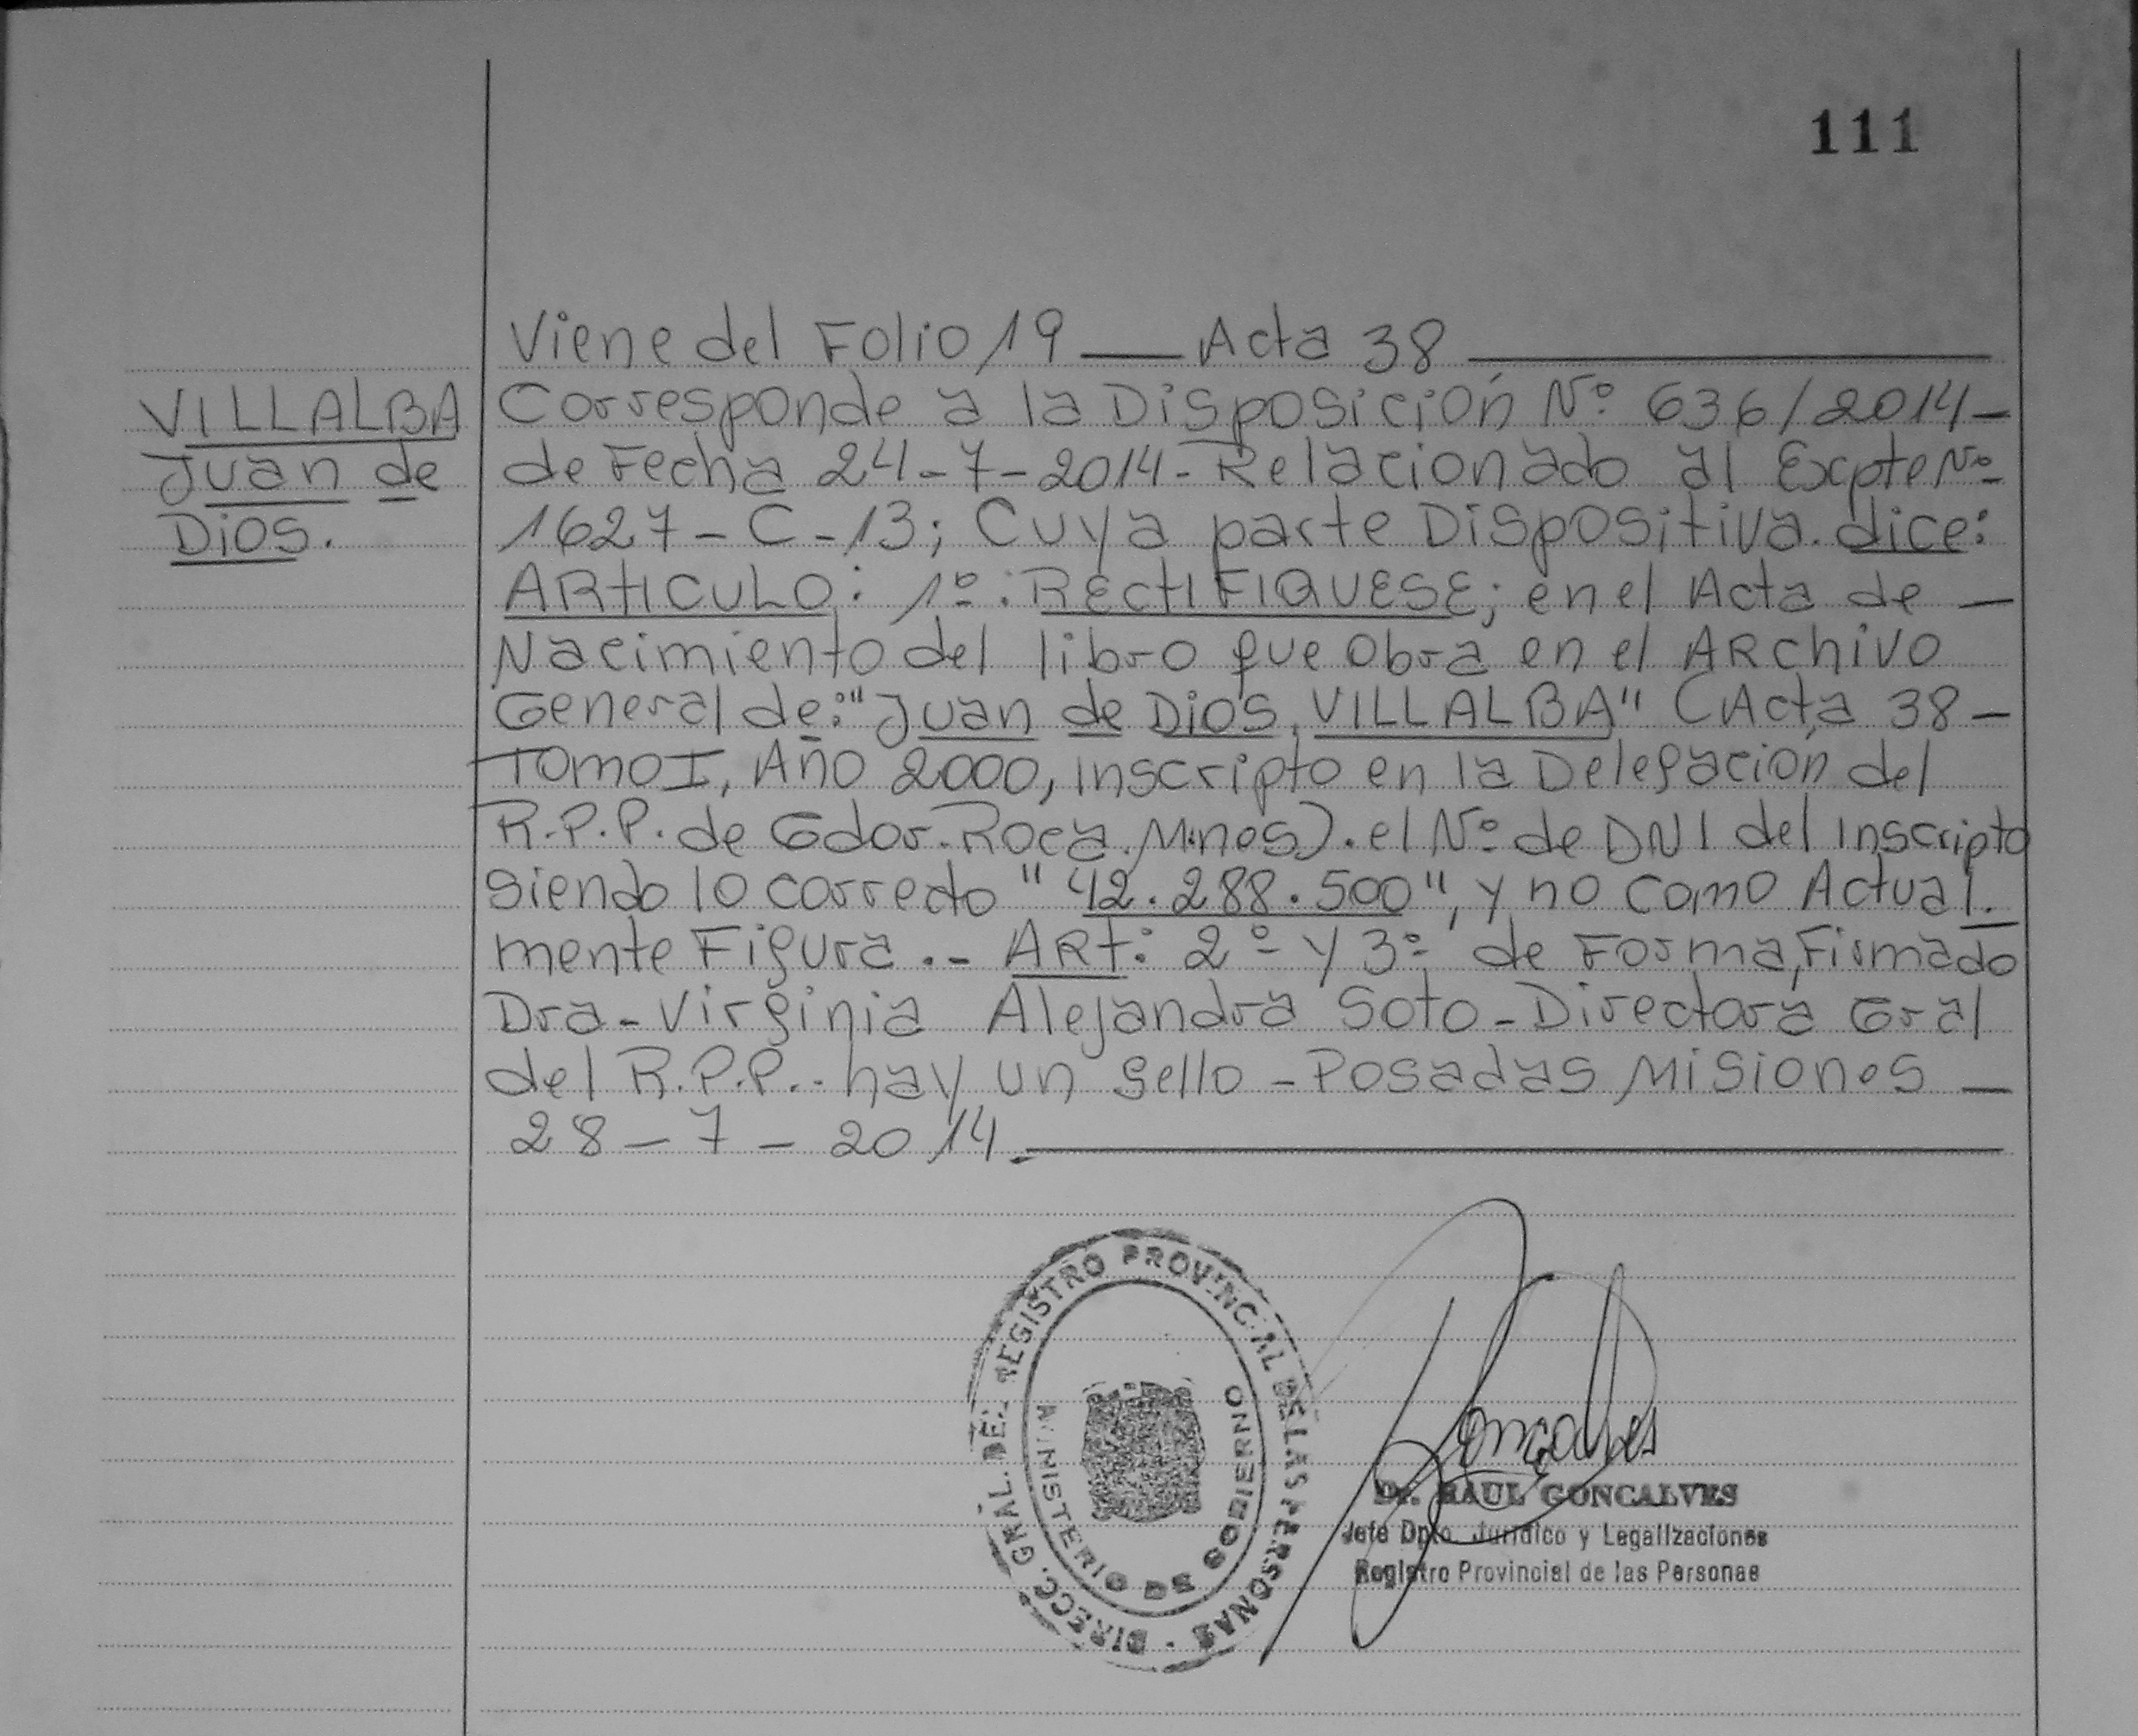 111
Viene del Folio 19 — Acta 38 —
VILLALBA
Juan de
Dios.
Corresponde a la Disposición Nº 636/2014-
de Fecha 24-7-2014- Relacionado al Expte Nº
1627-C-13; Cuya parte Dispositiva. dice:
ARTICULO: 1º: RECTIFIQUESE; en el Acta de —
Nacimiento del libro que obra en el ARchivo
General de: "Juan de Dios, VILLALBA" (Acta 38-
TOMO I, Año 2000, Inscripto en la Delegación del
R.P.P. de Gdor. Roca. Mnes). el Nº de DNI del Inscripto
siendo lo correcto "42.288.500", y no como Actual.
mente Figura .- ART: 2º y 3º de Forma, Firmado
Dra-Virginia Alejandra Soto - Directora Gral
del R.P.P.- hay un sello - Posadas Misiones —
28-7-2014.
DIRECC. GRAL. DEL REGISTRO PROVINCIAL DE LAS PERSONAS
MINISTERIO DE GOBIERNO
Goncalves
Dr. RAUL GONCALVES
Jefe Dpto. Jurídico y Legalizaciones
Registro Provincial de las Personas